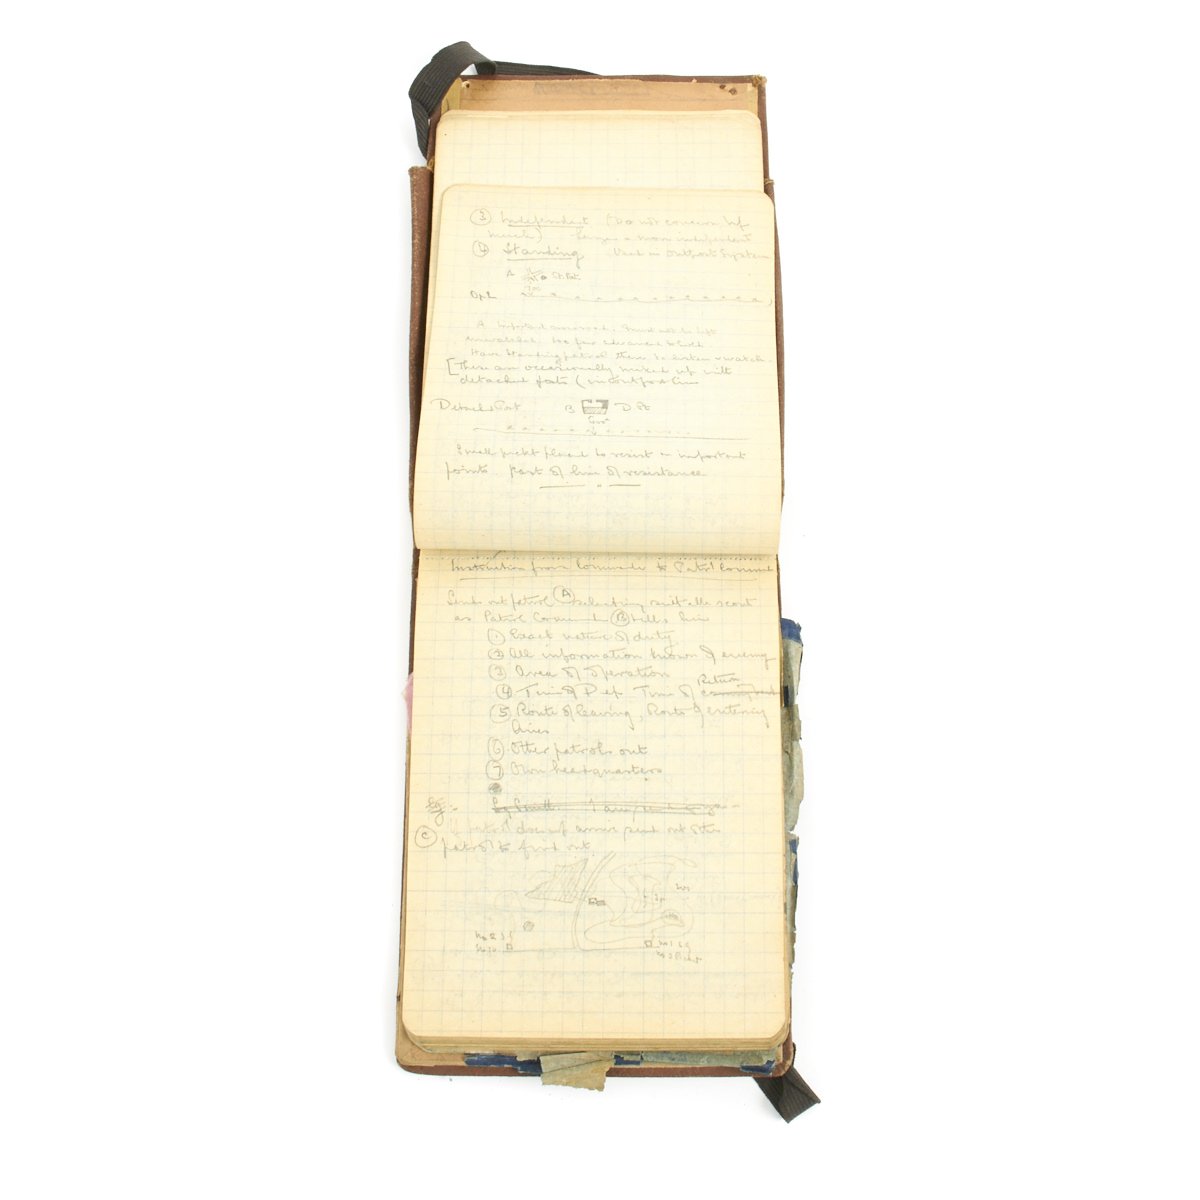 ③ Independent (Do not concern
much) more independent
④ Standing Used in Outpost System
A
A important crossroad. Must not be left
unwatched. too far advanced to hold
Have standing patrol there to listen & watch
[These are occasionally mixed up with
detached posts (in outpost line
Detached Post B D Pt
Small picket placed to resist on important
points. part of line of resistance
Instruction from Commander to Patrol Command
Sends out patrol Ⓐ selecting suitable scout
as Patrol Command Ⓑ tells him
① Exact nature of duty
② All information known of enemy
③ Area of operation
④ Time of Dep Time of Return
⑤ Route of leaving, Route of entering
lines
⑥ Other patrols out
⑦ Own headquarters
Eg:-
Ⓒ If patrol does not arrive send out other
patrol to find out.
No 2
No 1